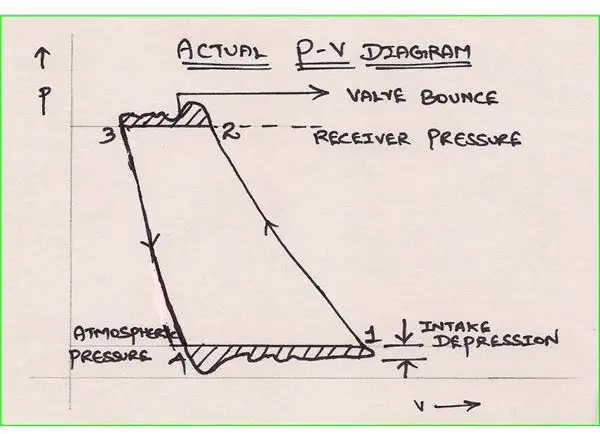 ACTUAL P-V DIAGRAM
P
VALVE BOUNCE
3
2
RECEIVER PRESSURE
ATMOSPHERIC
PRESSURE
4
1
INTAKE
DEPRESSION
V